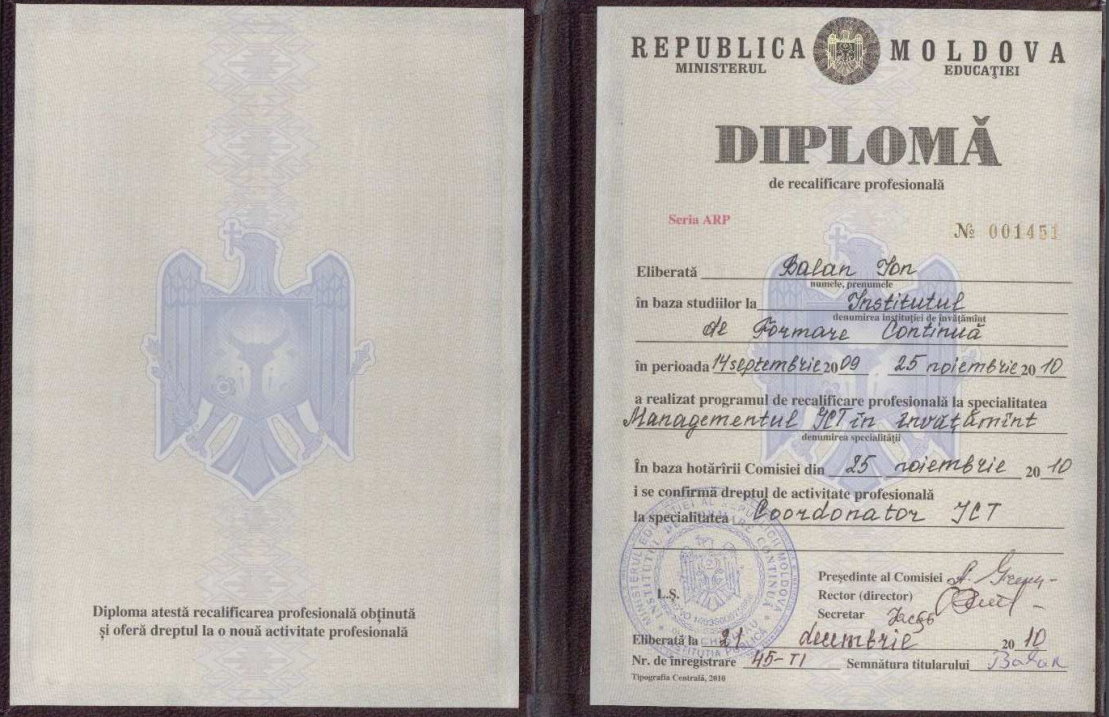 Diploma atestă recalificarea profesională obţinută
şi oferă dreptul la o nouă activitate profesională
REPUBLICA MOLDOVA
MINISTERUL EDUCAŢIEI
DIPLOMĂ
de recalificare profesională
Seria ARP
№ 001451
Eliberată Balan Ion
numele, prenumele
în baza studiilor la Institutul
denumirea instituţiei de învăţămînt
de Formare Continuă
în perioada 14 septembrie 2009 25 noiembrie 2010
a realizat programul de recalificare profesională la specialitatea
Managementul ICT în învăţămînt
denumirea specialităţii
În baza hotărîrii Comisiei din 25 noiembrie 2010
i se confirmă dreptul de activitate profesională
la specialitatea Coordonator ICT
Preşedinte al Comisiei
L.Ş. Rector (director)
Secretar
Eliberată la 21 decembrie 2010
Nr. de înregistrare 45-TI Semnătura titularului Balan
Tipografia Centrală, 2010